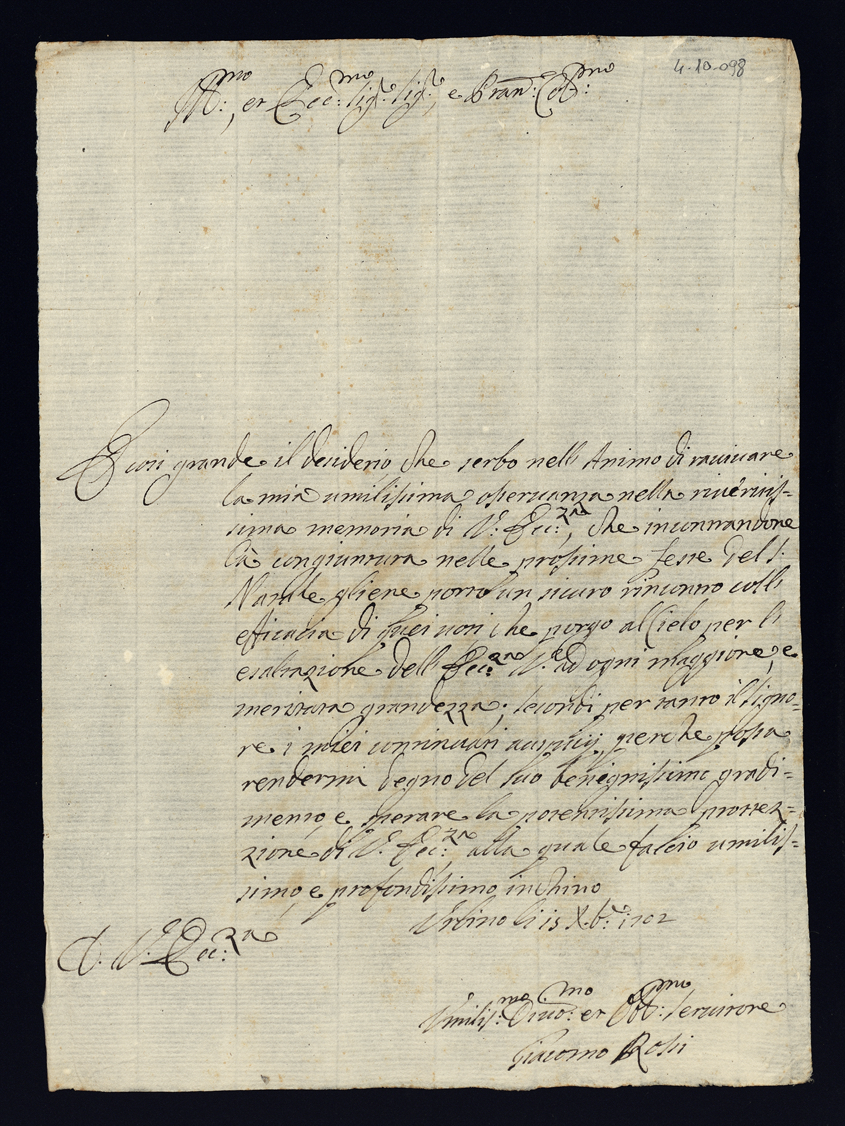 4-10-098
Ill.mo, et Ecc.mo Sig.r Sig.r, e Pran: Col.mo
È così grande il desiderio che serbo nell'Animo di ravivare
la mia umilissima osservanza nella riveritis-
sima memoria di V. Ecc.za, che incontrandone
la congiuntura nelle prossime feste del S.
Natale gliene porto un sicuro rincontro coll'
efficacia di quei voti che porgo al Cielo per l'
esaltazione dell'Ecc.za V. ad ogni maggiore, e
meritata grandezza; secondi per tanto il Signo-
re i miei continuati auspicij perche possa
rendermi degno del suo benignissimo gradi-
mento, e sperare la potentissima protez-
zione di V. Ecc.za, alla quale faccio umilis-
simo, e profondissimo inchino
Urbino li 15 X.bre 1702
D. V. Ecc.za
Umilis.mo Divo.mo et Obb.mo Servitore
Giacomo Rossi